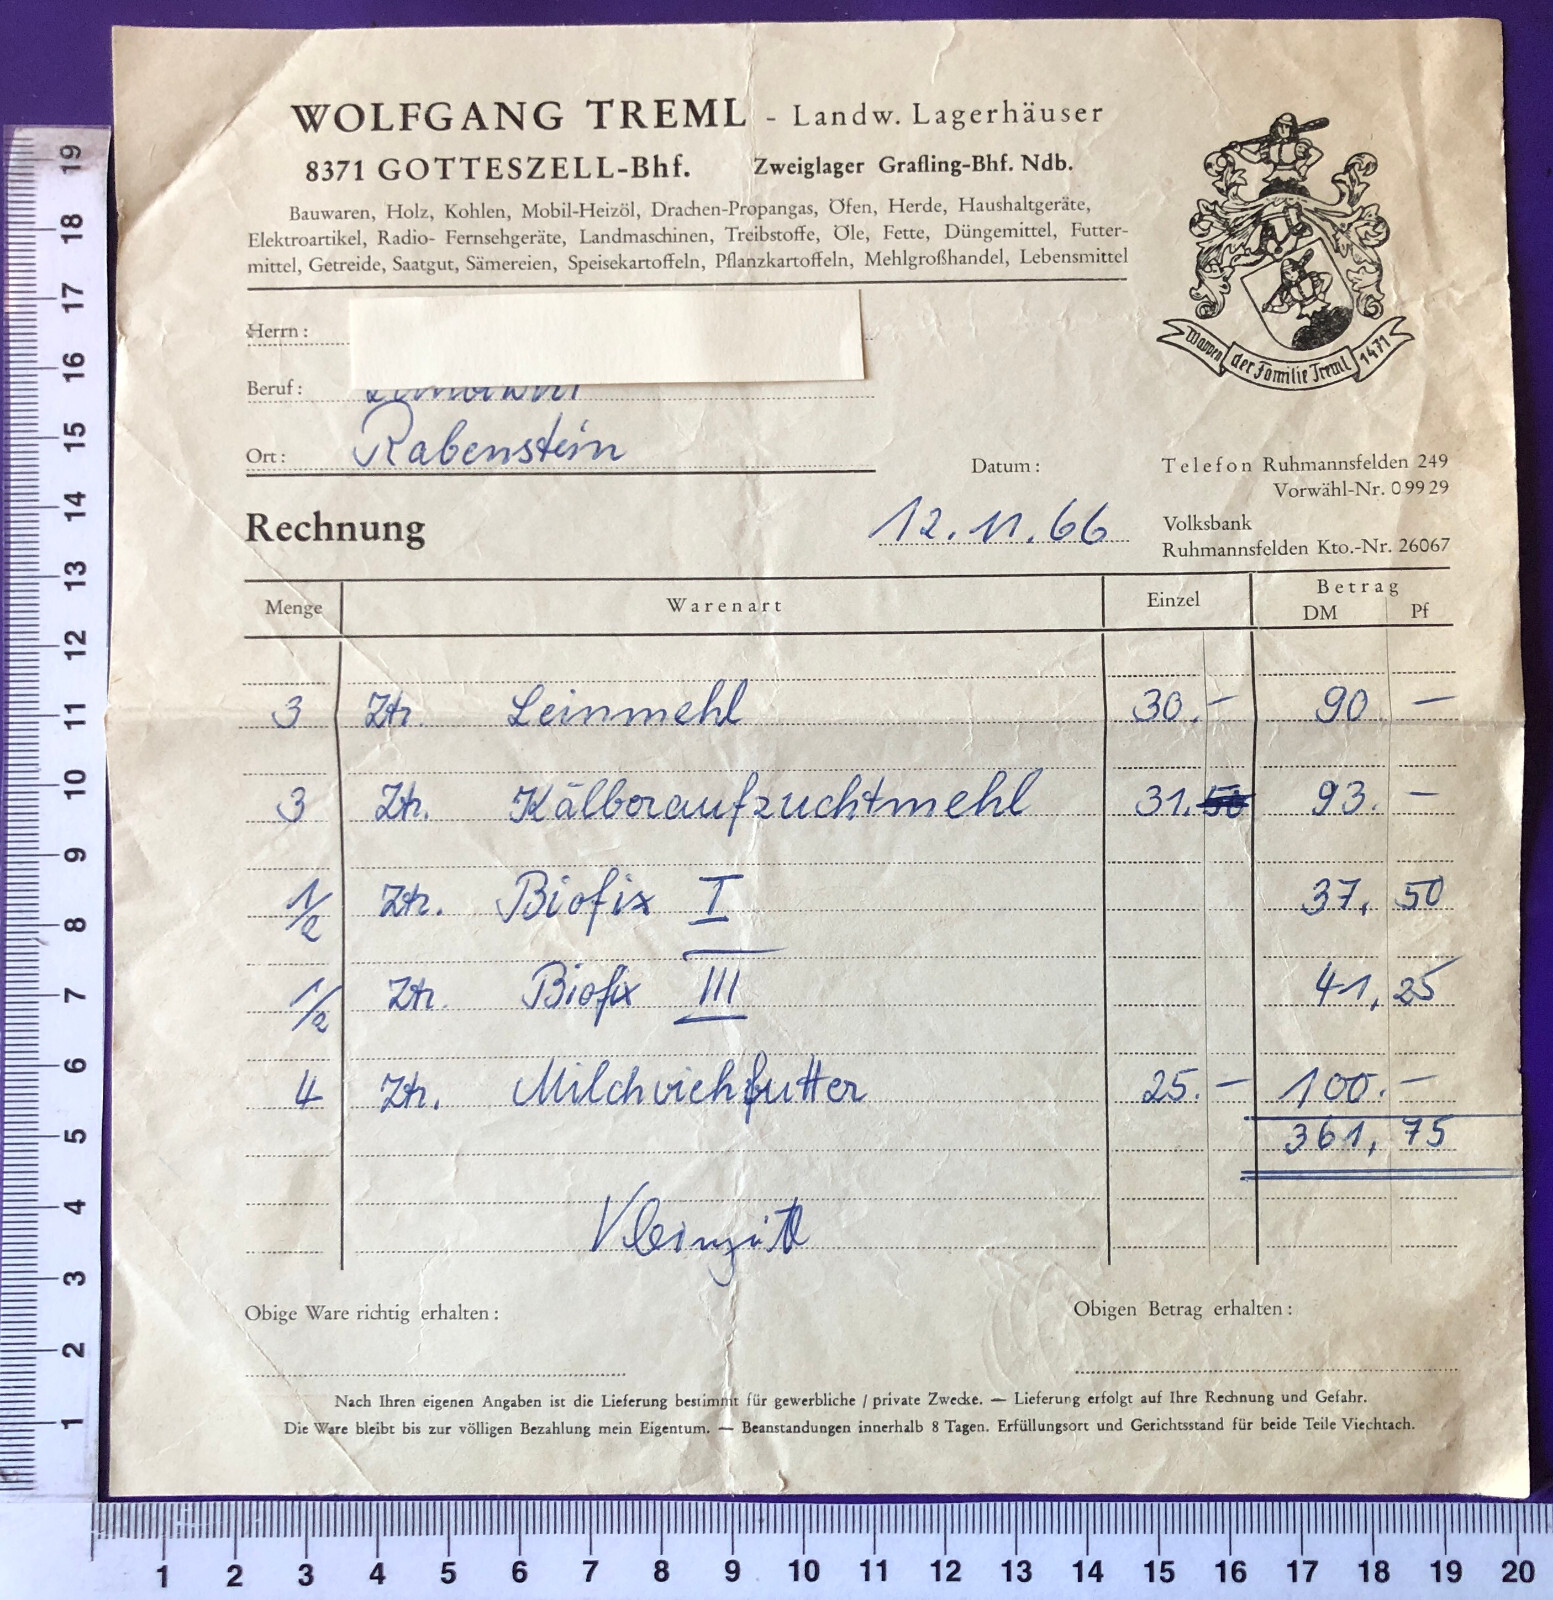 WOLFGANG TREML - Landw. Lagerhäuser
8371 GOTTESZELL-Bhf. Zweiglager Grafling-Bhf. Ndb.
Bauwaren, Holz, Kohlen, Mobil-Heizöl, Drachen-Propangas, Öfen, Herde, Haushaltgeräte,
Elektroartikel, Radio- Fernsehgeräte, Landmaschinen, Treibstoffe, Öle, Fette, Düngemittel, Futter-
mittel, Getreide, Saatgut, Sämereien, Speisekartoffeln, Pflanzkartoffeln, Mehlgroßhandel, Lebensmittel
Wappen der Familie Treml 1471
Herrn:
Beruf:
Ort: Rabenstein
Datum:
12.11.66
Telefon Ruhmannsfelden 249
Vorwähl-Nr. 09929
Volksbank
Ruhmannsfelden Kto.-Nr. 26067
Rechnung
Menge Warenart Einzel Betrag
DM Pf
3 Ztr. Leinmehl 30.- 90 -
3 Ztr. Kälberaufzuchtmehl 31.50 93.-
1/2 Ztr. Biofix I 37,50
1/2 Ztr. Biofix III 41,25
4 Ztr. Milchviehfutter 25.- 100.-
361,75
Obige Ware richtig erhalten:
Obigen Betrag erhalten:
Nach Ihren eigenen Angaben ist die Lieferung bestimmt für gewerbliche / private Zwecke. — Lieferung erfolgt auf Ihre Rechnung und Gefahr.
Die Ware bleibt bis zur völligen Bezahlung mein Eigentum. — Beanstandungen innerhalb 8 Tagen. Erfüllungsort und Gerichtsstand für beide Teile Viechtach.
19
18
17
16
15
14
13
12
11
10
9
8
7
6
5
4
3
2
1
1 2 3 4 5 6 7 8 9 10 11 12 13 14 15 16 17 18 19 20